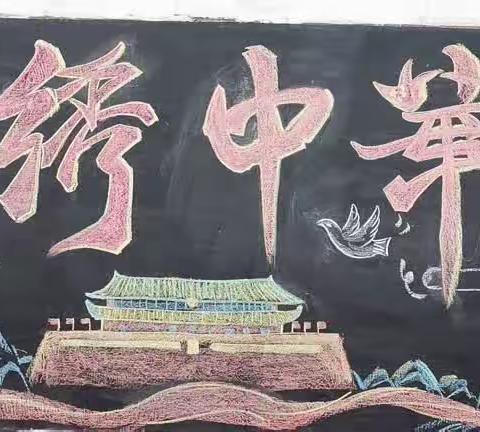 绣中華